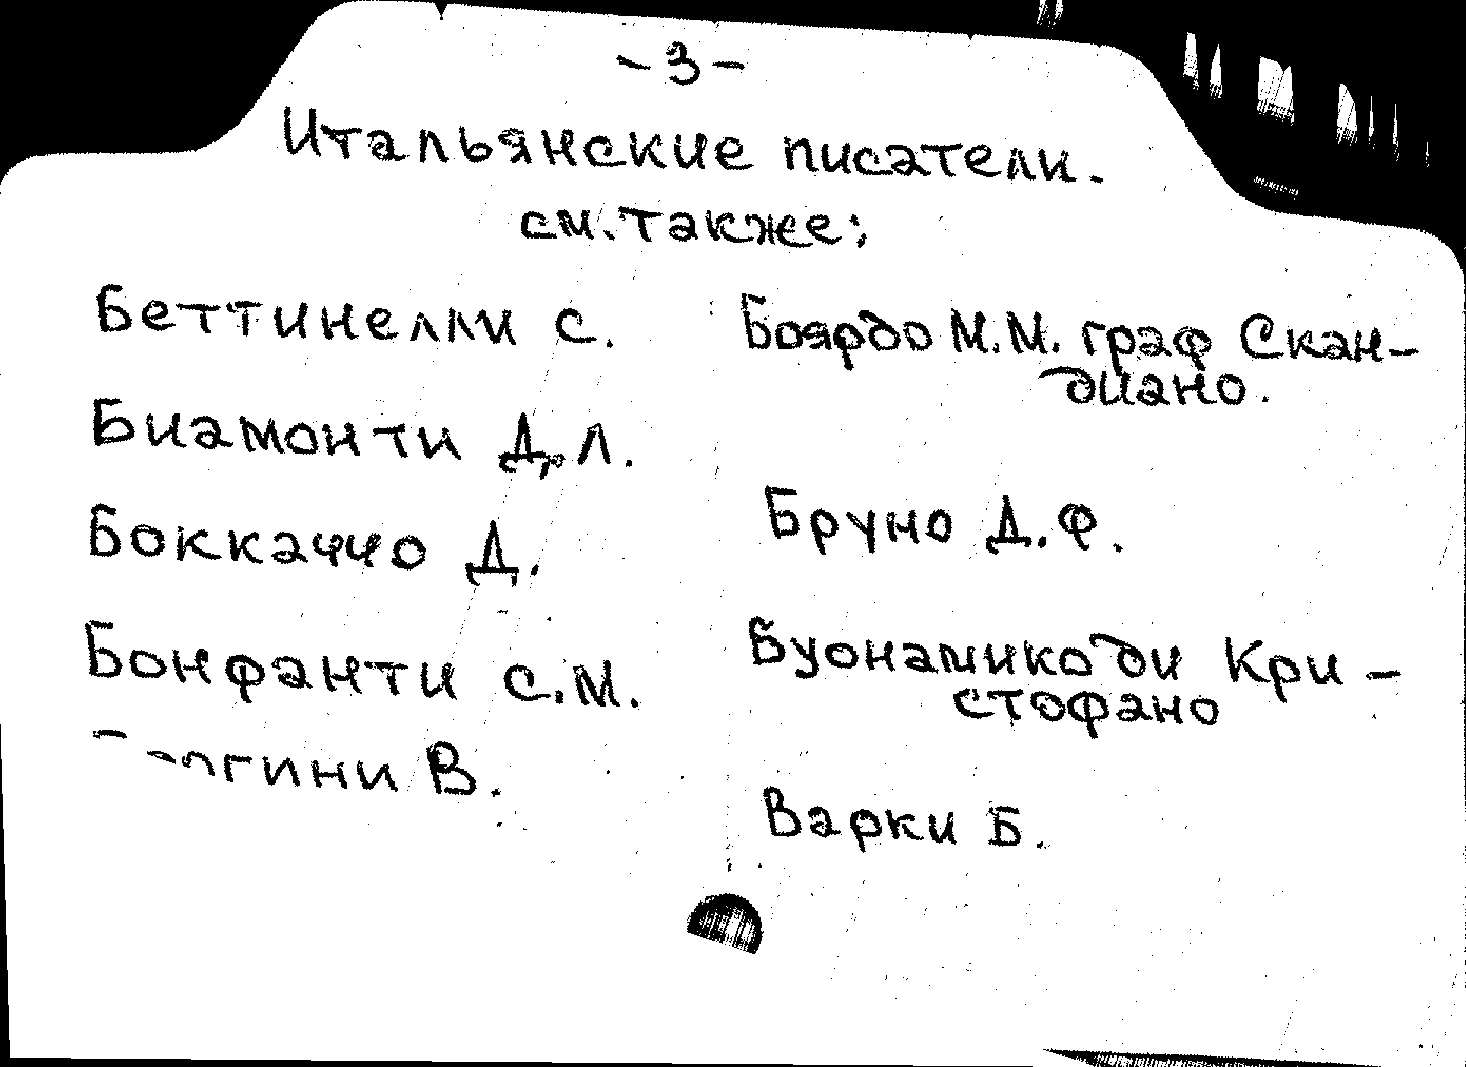 - 3 -
Итальянские писатели.
см. также:
Беттинелли С.
Биамонти Д., Л.
Боккаччо Д.
Бонфанти С.М.
В.
Боярдо М.М. граф Скан-
диано.
Бруно Д. Ф.
Буонамико ди Кри-
стофано
Варки Б.